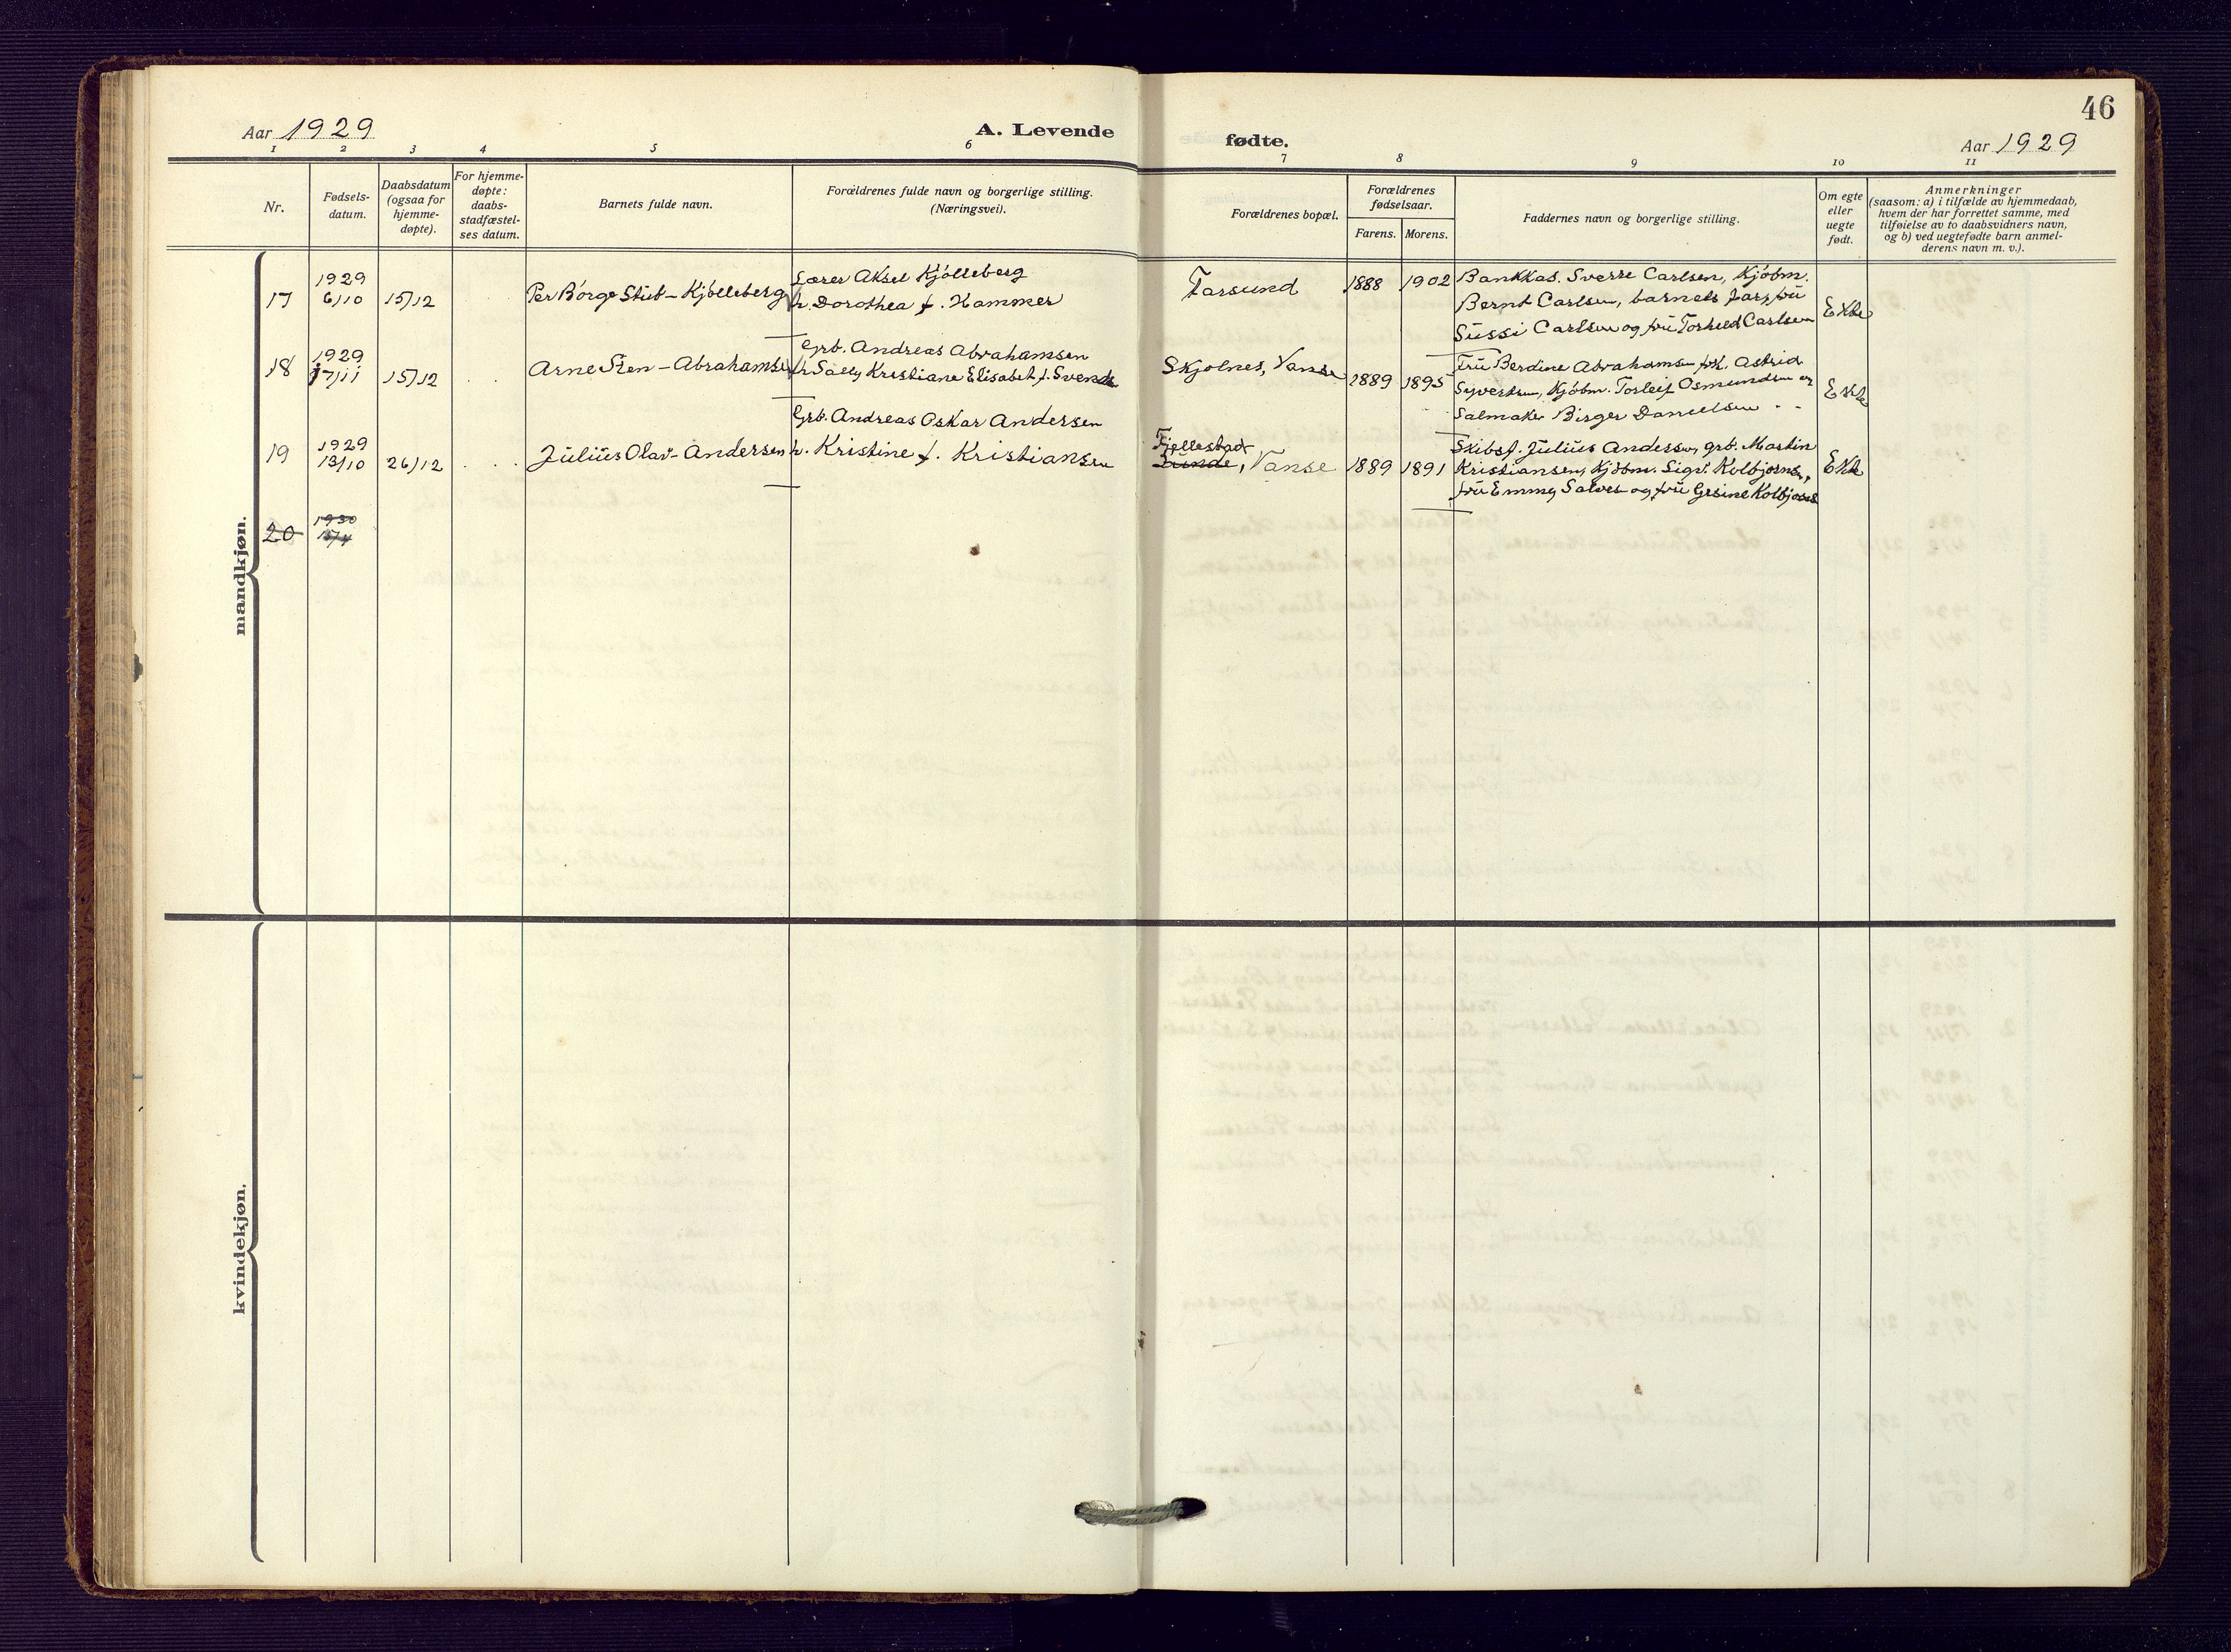 46
Aar 1929
A. Levende
fødte.
Aar 1929
1 2 3 4 5 6 7 8 9 10 11
Nr.
Fødsels-
datum.
Daabsdatum
(ogsaa for
hjemme-
døpte).
For hjemme-
døpte:
daabs-
stadfæstel-
ses datum.
Barnets fulde navn.
Forældrenes fulde navn og borgerlige stilling.
(Næringsvei).
Forældrenes bopæl.
Forældrenes
fødselsaar.
Farens. Morens.
Faddernes navn og borgerlige stilling.
Om egte
eller
uegte
født.
Anmerkninger
(saasom: a) i tilfælde av hjemmedaab,
hvem der har forrettet samme, med
tilføielse av to daabsvidners navn,
og b) ved uegtefødte barn anmel-
derens navn m. v.).
mandkjøn.
17
1929
6/10
15/12
Per Børge Stub-Kjølleberg
Lærer Aksel Kjølleberg
h. Dorothea f. Hammer
Farsund
1888 1902
Bankkas. Sverre Carlsen, Kjøbm.
Bernt Carlsen, barnets far, frü
Süssi Carlsen og frü Torhild Carlsen
Ekte
18
1929
17/11
15/12
Arne Sten-Abrahamsen
Grb. Andreas Abrahamsen
h. Sally Kristiane Elisabet f. Svends
Skjolnes, Vanse
1889 1895
Frü Berdine Abrahamsen, frk. Astrid
Syvertsen, Kjøbm. Torleif Osmundsen og
Salmaker Birger Danielsen
Ekte
19
1929
13/10
26/12
Jülius Olav-Andersen
Grb. Andreas Oskar Andersen
h. Kristine f. Kristiansen
Fjellestad
Sünde, Vanse
1889 1891
Skibsf. Jülius Andersen, grb. Martin
Kristiansen, Kjøbm. Sigv. Kolbjørnsen,
frü Emmy Salvesen og frü Gesine Kolbjørns
Ekte
20
1930
kvindekjøn.